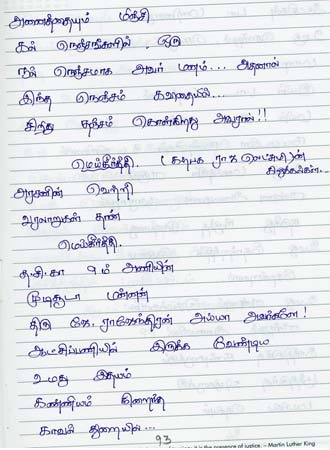 அனைத்தையும் மிஞ்சி
கல் நெஞ்சங்களில் ஒரு
நல் நெஞ்சமாக அவர் மனம்... அதனால்
இந்த நெஞ்சம் கவிதையில்...
சிறிது தஞ்சம் கொள்கிறது அவரால்!!
மெய்கீர்த்தி. (கற்பக ராஜலெட்சுமி)ன்
கிறுக்கல்கள்...
அரசனின் வெற்றி
வரலாறுகள் தான்
மெய்கீர்த்தி.
த.சி.கா 9ம் அணியின்
முடிசூடா மன்னன்
திரு ஜே. ராஜேந்திரன் அய்யா அவர்களே!
ஆட்சிப்பணியில் இருக்க வேண்டிய
உமது இதயம்
கண்ணியம் நிறைந்த
காவல் துறையில்...
93
is the presence of justice. – Martin Luther King